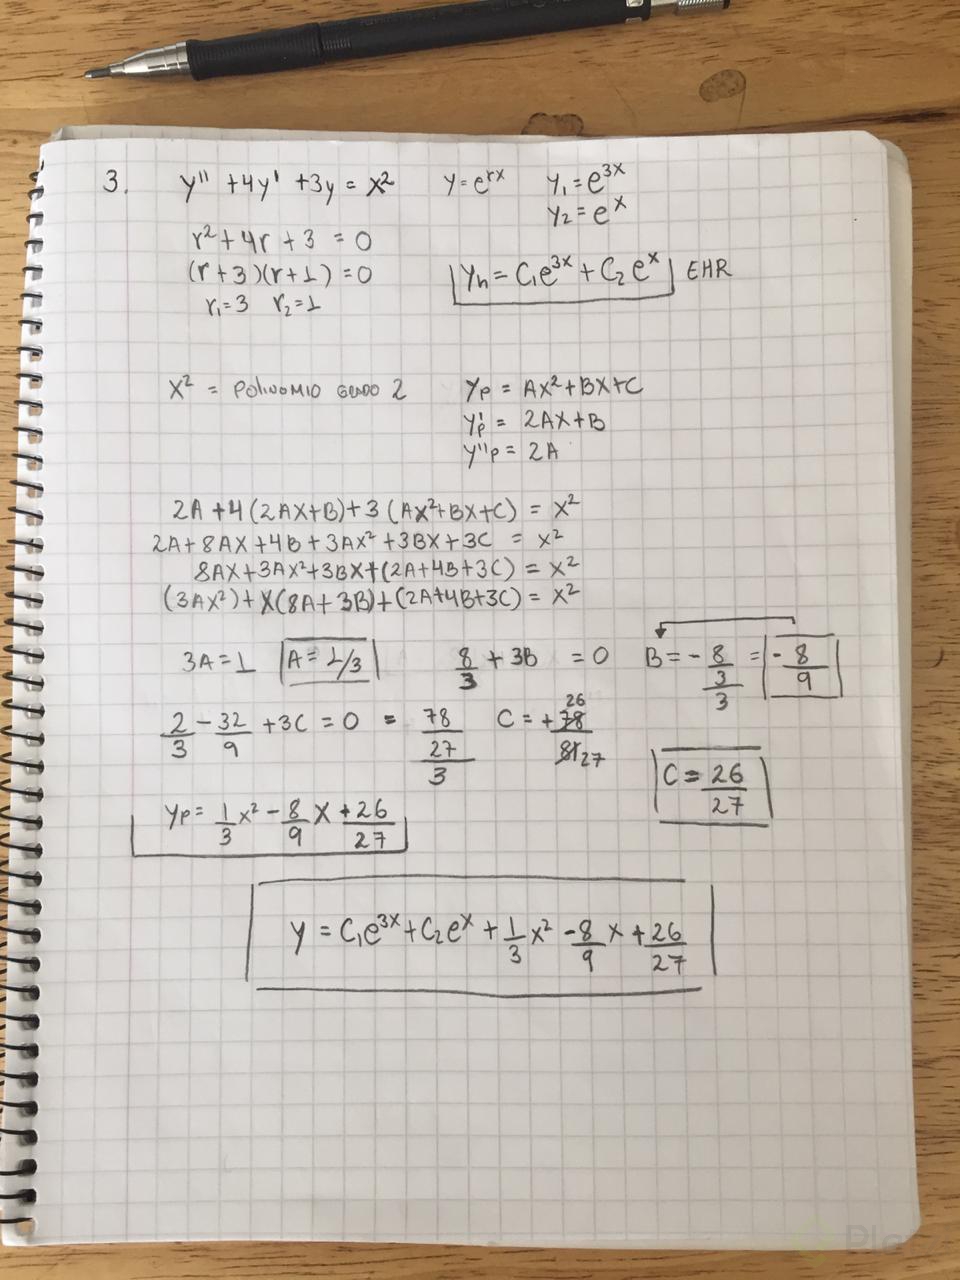 3. y'' +4y' +3y = x² y=e^rx y₁=e^3x
y₂=e^x
r²+4r+3 =0
(r+3)(r+1)=0 yh=C₁e^3x+C₂e^x EHR
r₁=3 r₂=1
x² = Polinomio Grado 2 yp = Ax²+Bx+C
y'p = 2Ax+B
y''p = 2A
2A+4(2Ax+B)+3(Ax²+Bx+C) = x²
2A+8Ax+4B+3Ax²+3Bx+3C = x²
8Ax+3Ax²+3Bx+(2A+4B+3C) = x²
(3Ax²)+x(8A+3B)+(2A+4B+3C) = x²
3A=1 A=1/3 8/3 + 3B = 0 B=-8/3/3 = -8/9
2/3 - 32/9 +3C = 0 = 78/27/3 C=+78/81 26/27
C=26/27
yp= 1/3 x² - 8/9 x + 26/27
y = C₁e^3x+C₂e^x + 1/3 x² - 8/9 x + 26/27